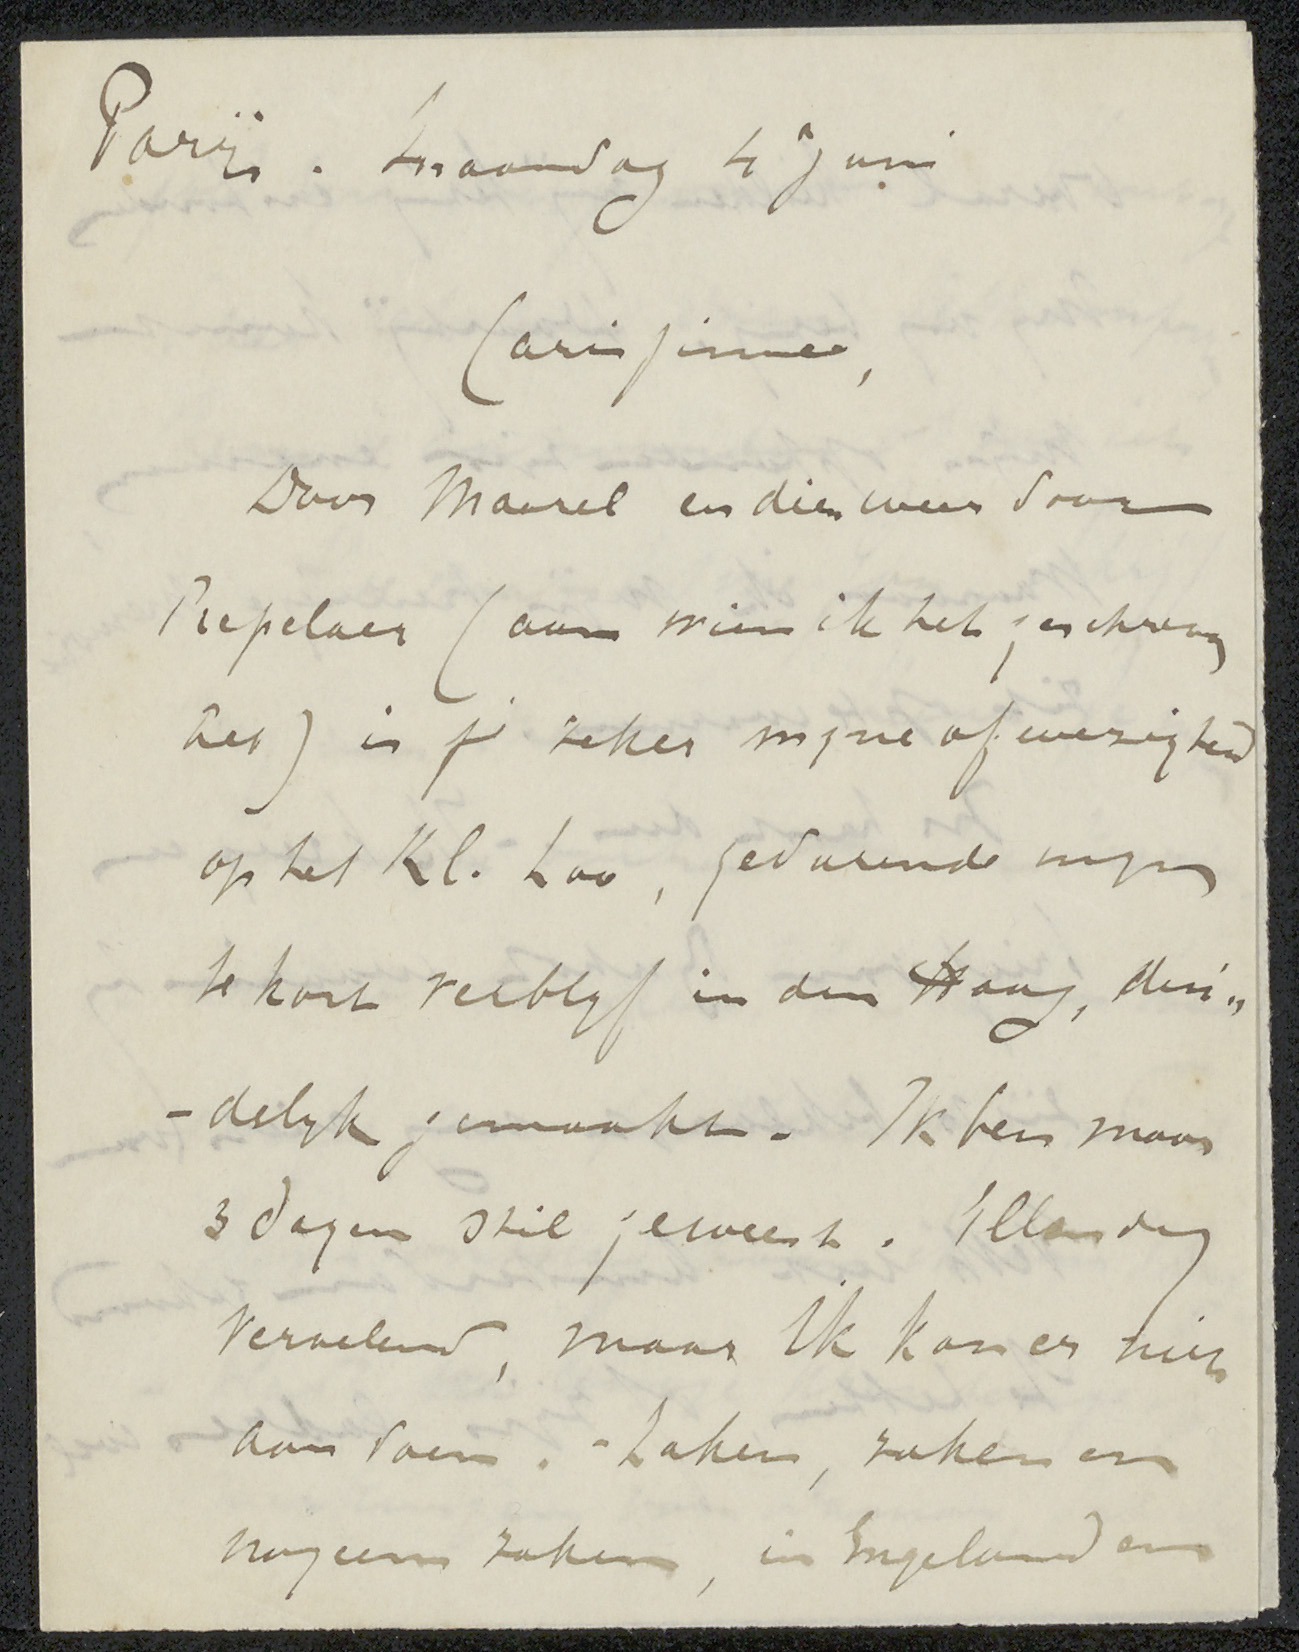 Parijs. Maandag 4 Juni
Carissime,
Door Maurel en dien weer door
Repelaer (aan wien ik het geschreven
heb) is je zeker myne afwezigheid
op het Kl. Loo, gedurende myn
te kort verblyf in den Haag, dui„
-delyk gemaakt. Ik ben maar
3 dagen stil geweest. Ellendig
vervelend, maar ik kan er niets
aan doen. - Zaken, zaken en
nog eens zaken, in Engeland en